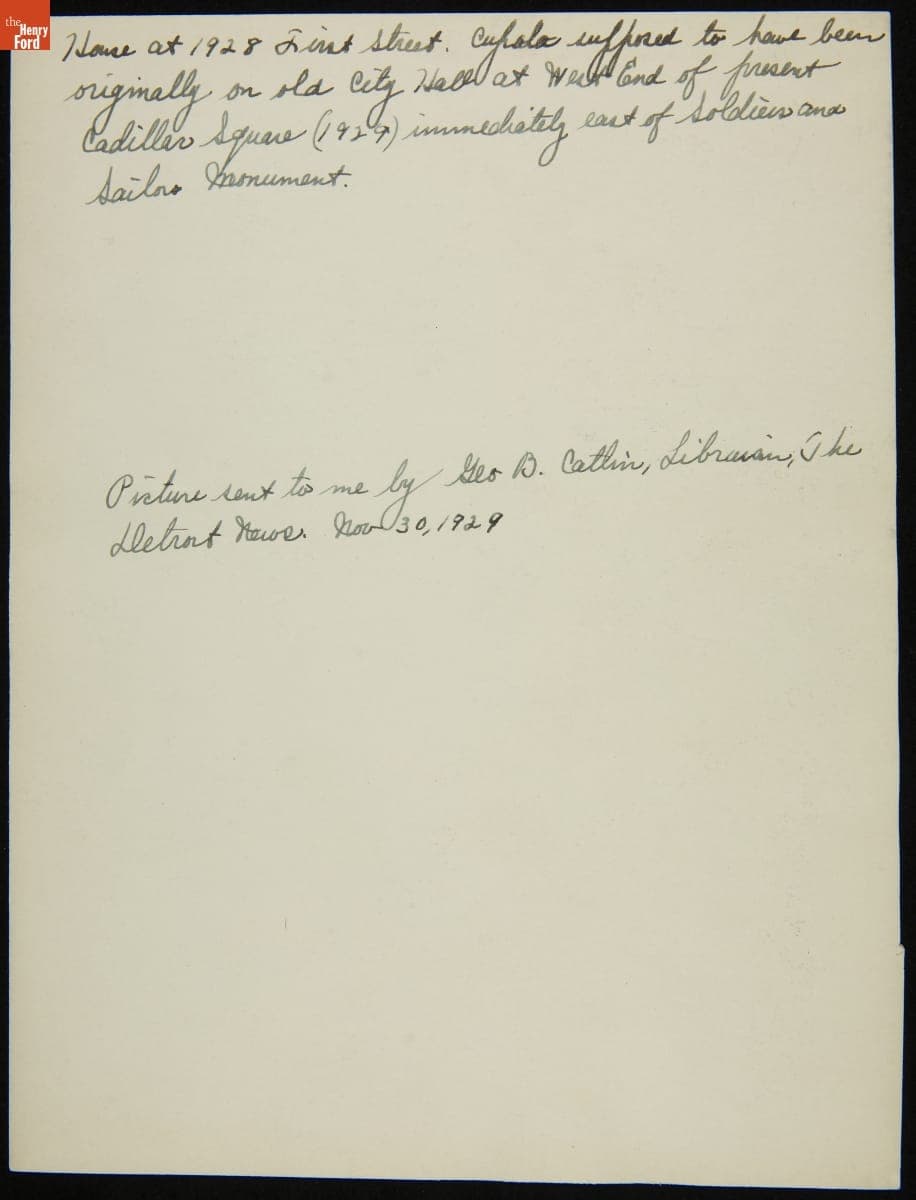 the
Henry
Ford
House at 1928 First Street. Cupola supposed to have been
originally on old City Hall at West End of present
Cadillac Square (1929) immediately east of Soldiers and
Sailors Monument.
Picture sent to me by Geo B. Catlin, Librarian, The
Detroit News. Nov 30, 1929